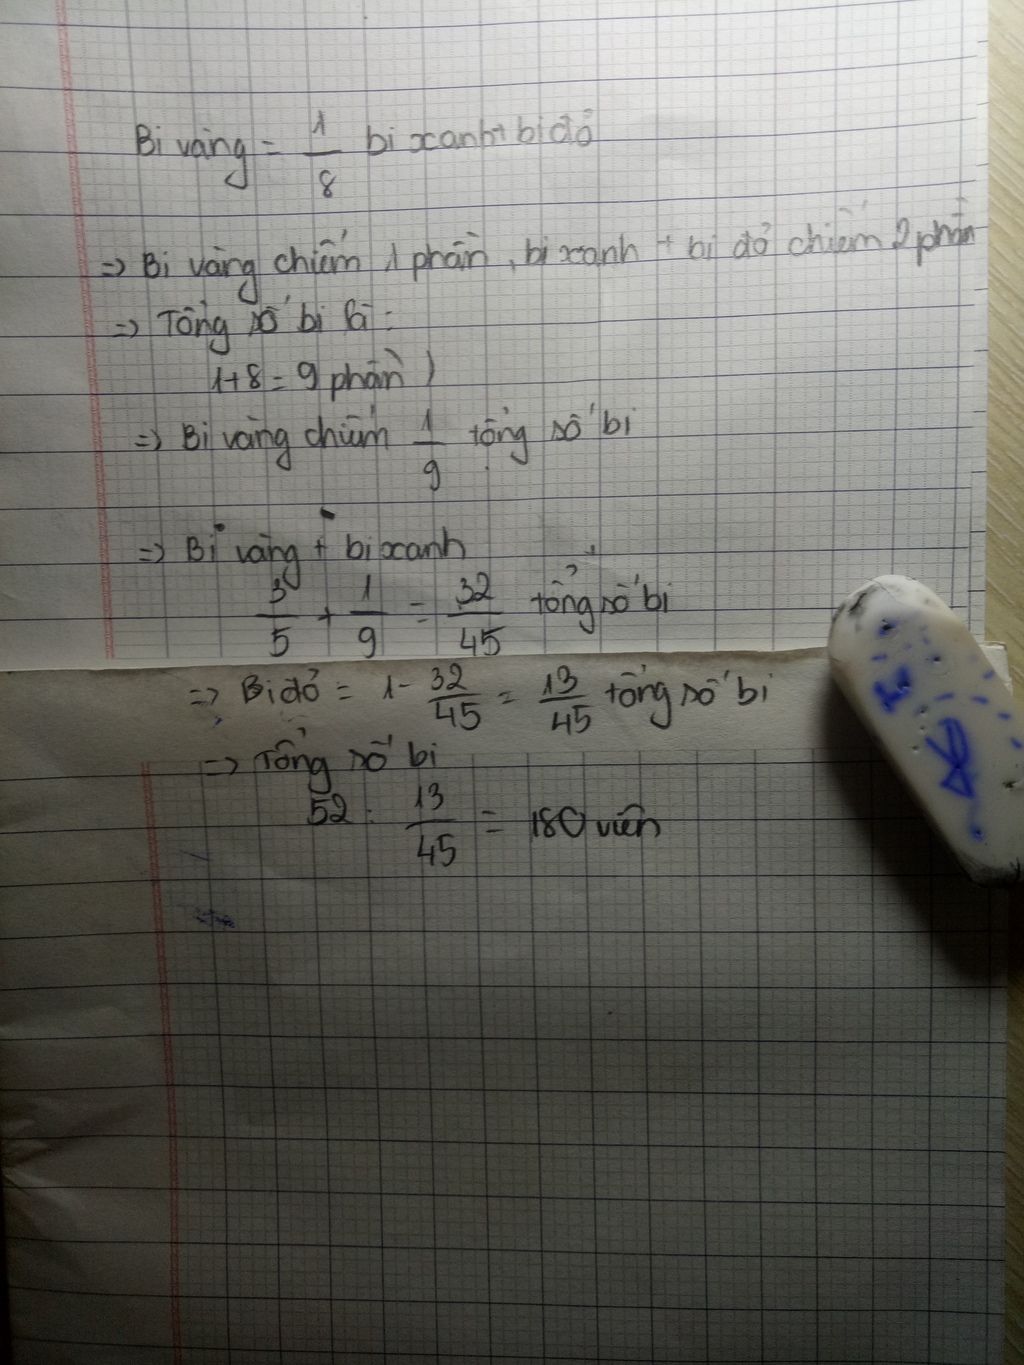 Bi vàng = 1/8 bi xanh + bi đỏ
=> Bi vàng chiếm 1 phần, bi xanh + bi đỏ chiếm phần
=> Tổng số bi là:
1+8 = 9 phần)
=> Bi vàng chiếm 1/9 tổng số bi
=> Bi vàng + bi xanh
3/5 + 1/9 = 32/45 tổng số bi
=> Bi đỏ = 1 - 32/45 = 13/45 tổng số bi
=> Tổng số bi
52 : 13/45 = 180 viên